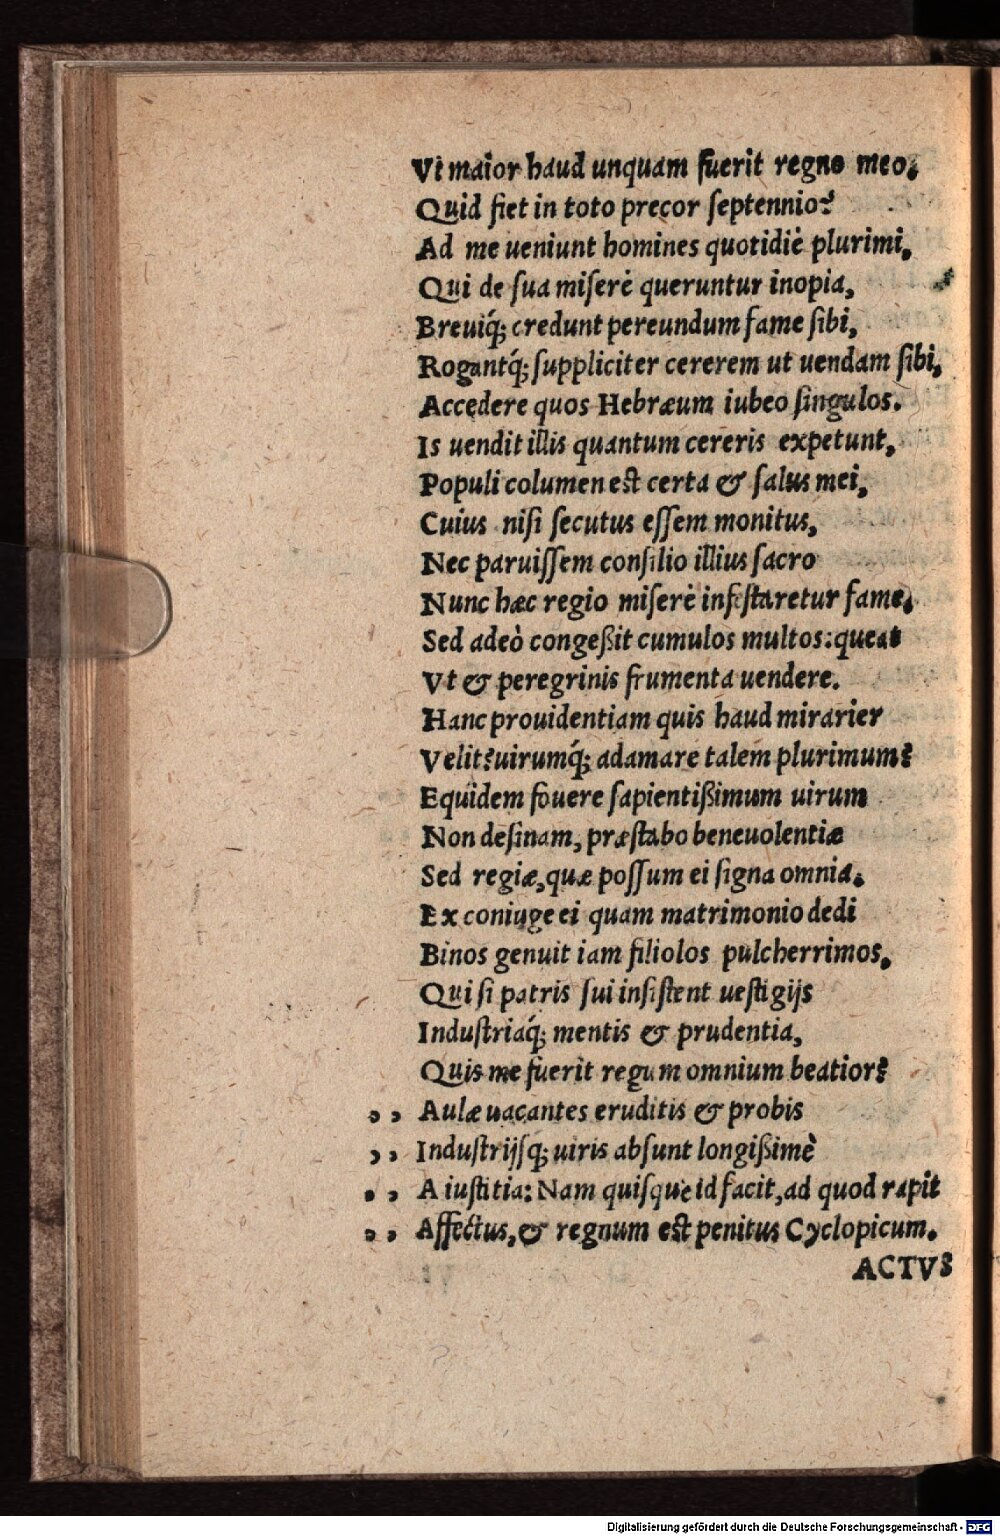 Vt maior haud unquam fuerit regno meo.
Quid fiet in toto precor septennio?
Ad me ueniunt homines quotidiè plurimi,
Qui de sua miserè queruntur inopia,
Breuiq́; credunt pereundum fame sibi,
Rogantq́; suppliciter cererem ut uendam sibi,
Accedere quos Hebræum iubeo singulos.
Is uendit illis quantum cereris expetunt,
Populi columen est certa & salus mei,
Cuius nisi secutus essem monitus,
Nec paruissem consilio illius sacro
Nunc hæc regio miserè infestaretur fame,
Sed adeò congeßit cumulos multos: queat
Vt & peregrinis frumenta uendere.
Hanc prouidentiam quis haud mirarier
Velit? uirumq́; adamare talem plurimum?
Equidem fouere sapientißimum uirum
Non desinam, præstabo beneuolentiæ
Sed regiæ, quæ possum ei signa omnia.
Ex coniuge ei quam matrimonio dedi
Binos genuit iam filiolos pulcherrimos,
Qui si patris sui insistent uestigijs
Industriaq́; mentis & prudentia,
Quis me fuerit regum omnium beatior?
,, Aulæ uacantes eruditis & probis
,, Industrijsq; uiris absunt longißimè
,, A iustitia: Nam quisque id facit, ad quod rapit
,, Affectus, & regnum est penitus Cyclopicum.
ACTVS
Digitalisierung gefördert durch die Deutsche Forschungsgemeinschaft - DFG